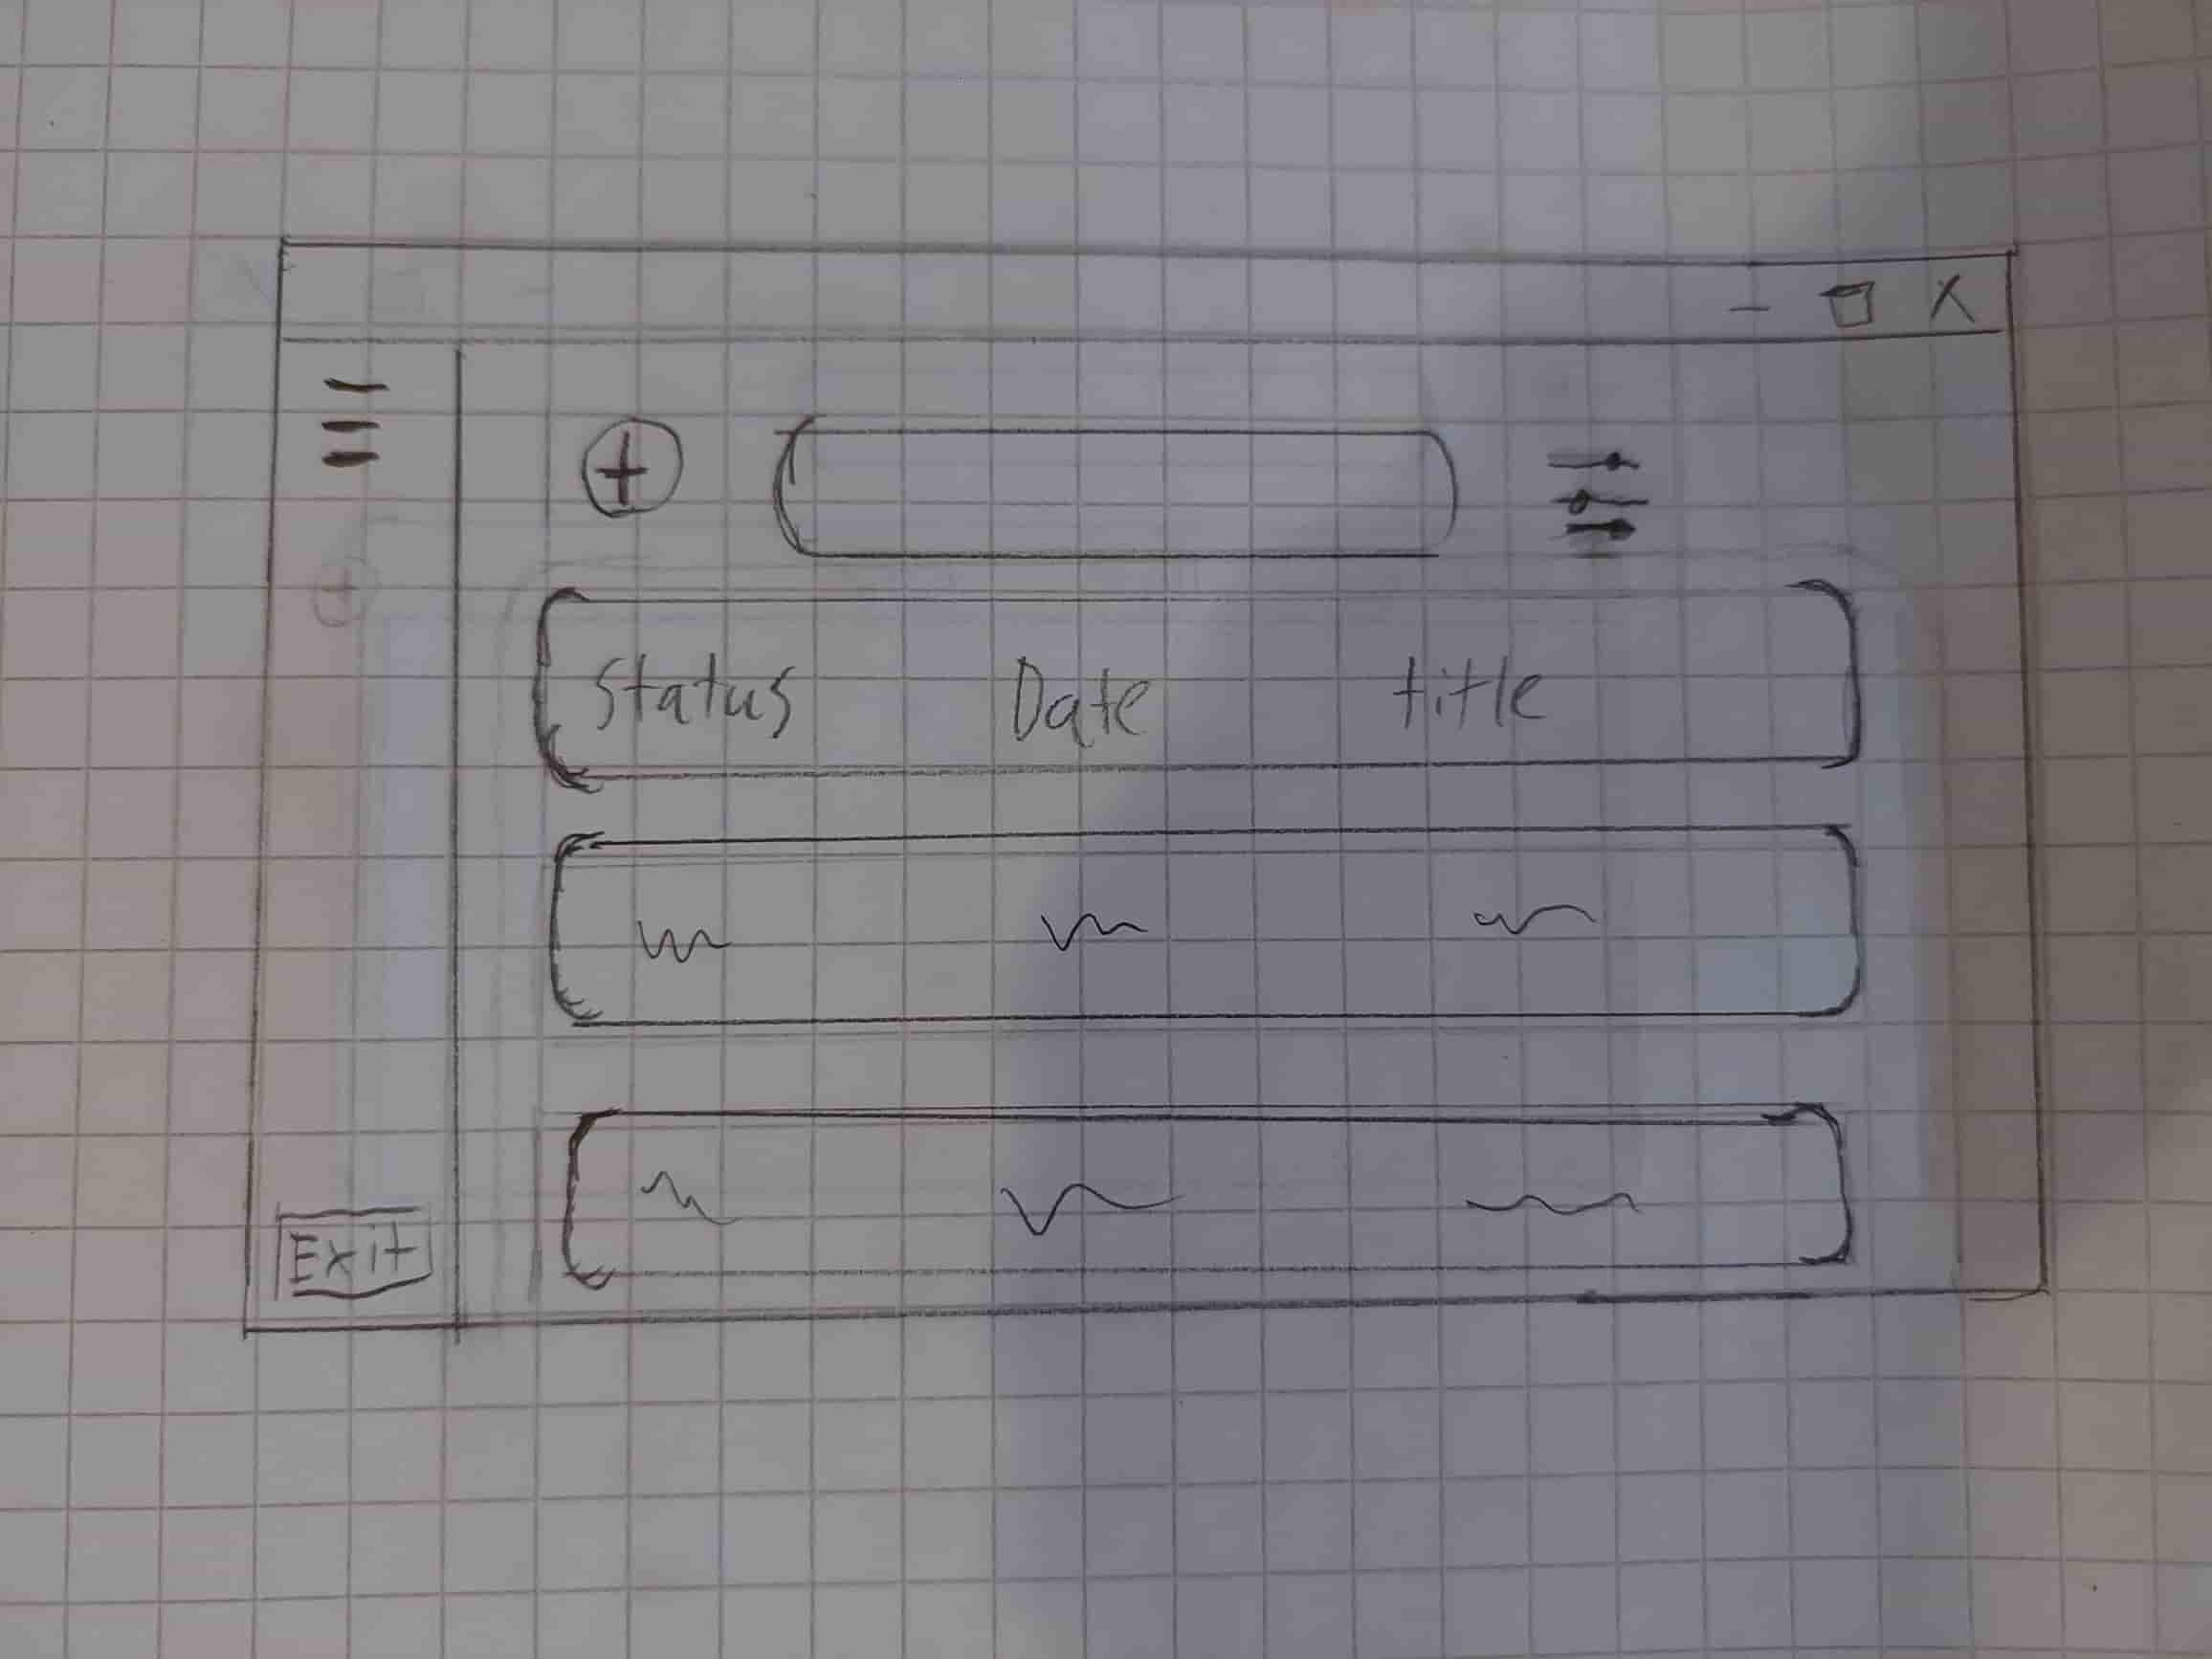 Status Date title
Exit